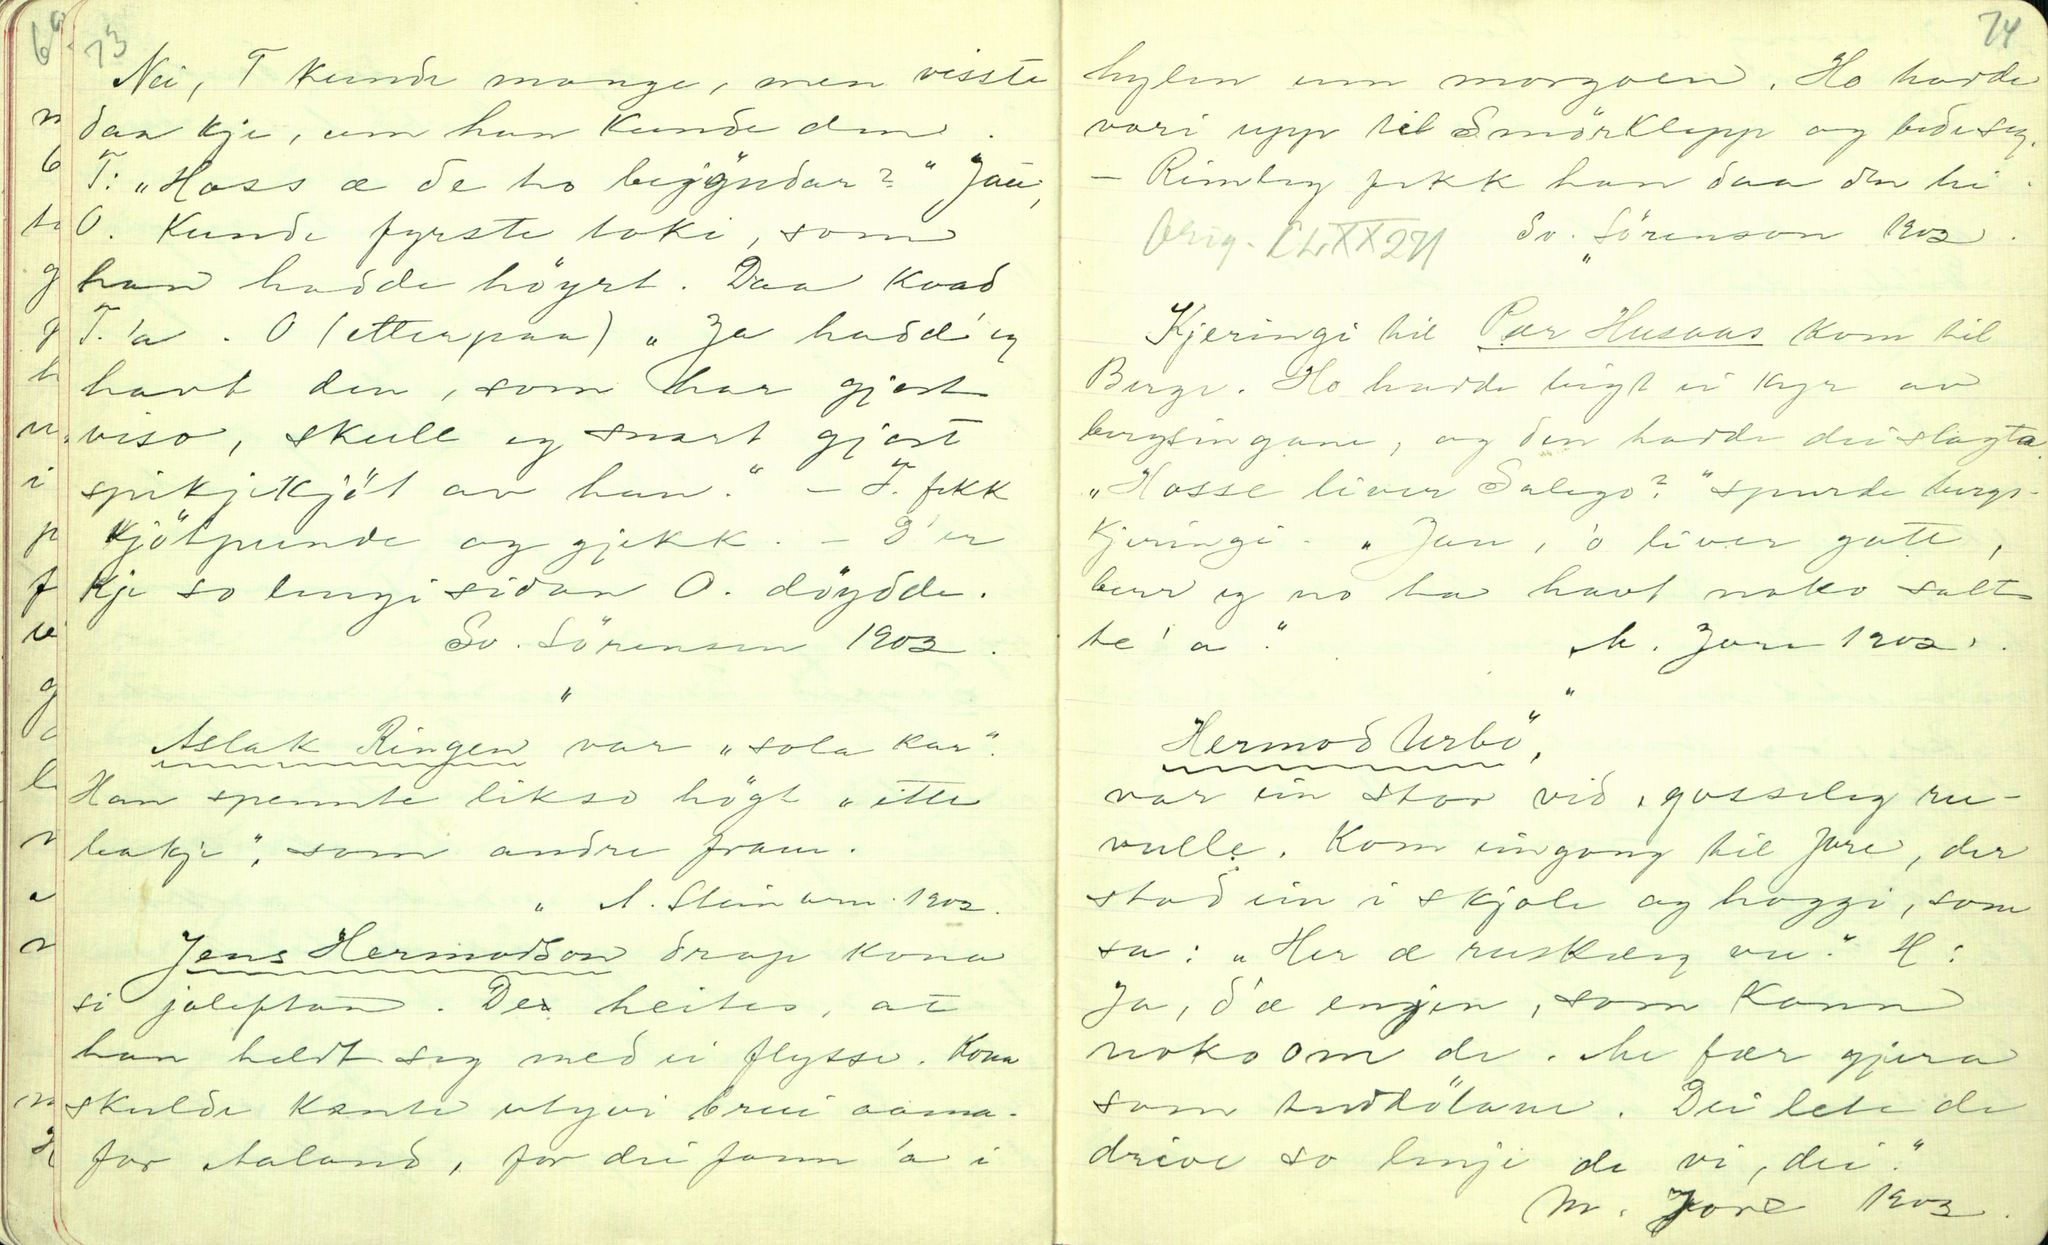 73
Nei, T kunde mange, men visste
daa kje, um han kunde den.
T: „Hoss æ de ho begynðar?" Jau,
O. kunde fyrste toki, som
han hadde höyrt. Daa kvad
T. 'a. O (etterpaa) „Ja hadd' eg
havt den, som har gjort
viso, skull eg snart gjort
spikjekjöt av han." – T. fekk
kjötpunde og gjekk. – D'er
kje so lengi sidan O. döydde.
Sv. Sörenson 1903.
"
Aslak Ringen var „sola kar".
Han spennte likso högt „ette
bakje", som andre fram.
" A. Stein um. 1902.
Jens Hermodson drap kona
si joleftan. Det heites, at
han heldt seg med ei flysse. Kona
skulde kante utyvi brui
for Aaland, for dei fann 'a i
74
hylen um morgoen. Ho hadde
vori upp til Smörklepp og bede seg.
– Rimleg fekk han daa den hi.
Orig. CLXX 271 Sv. Sörenson 1903.
"
Kjeringi til Pær Husaas kom til
Berge. Ho hadde leigt ei kyr av
bergsingane, og den hadde dei slagta.
„Hosse liver Salego?" spurde bergs-
kjeringi. „Jau, 'o liver gott,
bær eg no ha havt noko salt
te 'a." M. Jore 1903.
"
Hermod Urbö,
var ein stor vid, gosseleg ru-
vulle. Kom eingong til Jore, der
stod ein i skjole og hoggi, som
sa: „Her æ ruskeleg vu." H:
Ja, d'æ engjen, som kann
noko om de. Me fær gjera
som tudtölane. Dei lete de
drive so lenje de vi, dei."
M. Jore 1903.